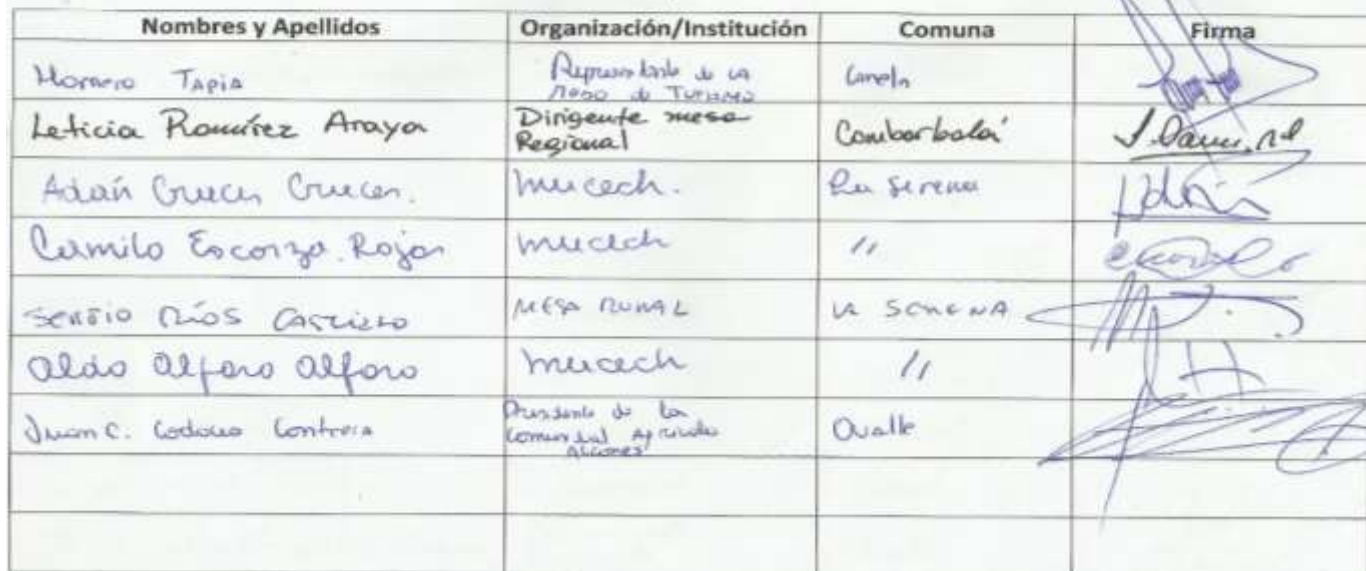 Nombres y Apellidos Organización/Institución Comuna Firma
Tapia Representante de la Canela
Mesa de Turismo
Leticia Ramírez Araya Dirigente mesa Combarbalá
Regional
Adán Cruces Cruces. mucech. La Serena
Camilo Escorza Rojas mucech 〃
Sergio Ríos Castillo MESA RURAL LA SERENA
Aldo Alfaro Alfaro mucech 〃
Juan C. Contreras Presidente de la Ovalle
Comunidad Agrícola